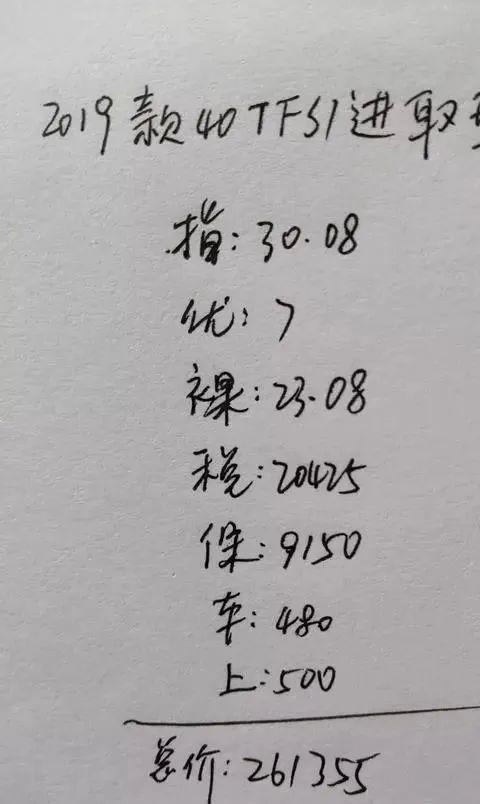 2019款40TFSI进取型
指:30.08
优:7
裸:23.08
税:20425
保:9150
车:480
上:500
总价:261355